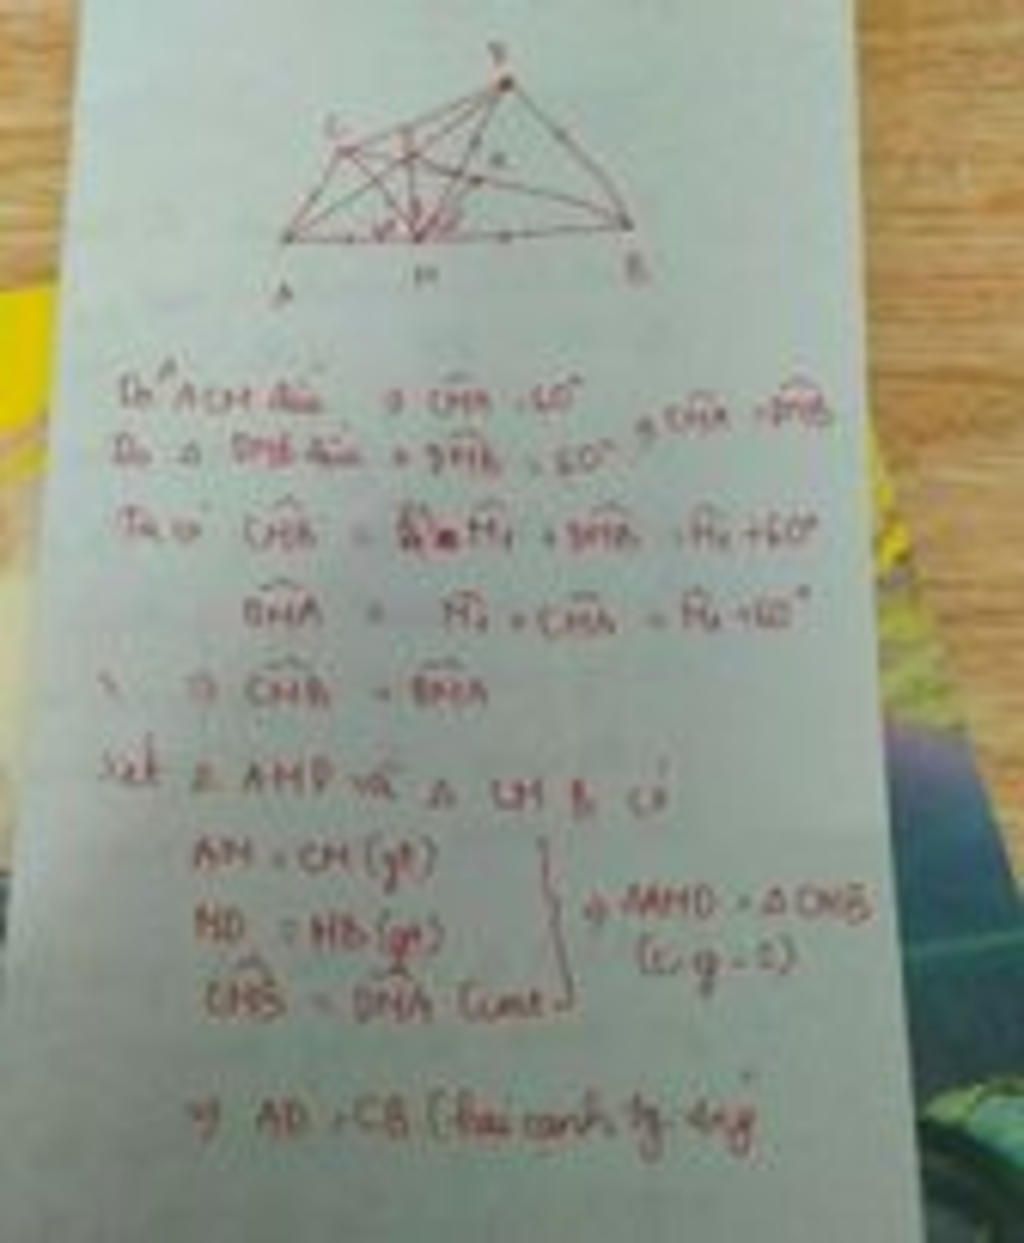 D
C
A M B
Do △ ACM đều ⇒ CMA = 60°
Do △ DMB đều ⇒ DMB = 60° ⇒ CMA = DMB
Ta có CMB = M₂ + DMB = M₂ + 60°
DMA = M₂ + CMA = M₂ + 60°
⇒ CMB = DMA
Xét △ AMD và △ CMB có
AM = CM (gt)
MD = MB (gt) ⇒ △AMD = △CMB
CMB = DMA (cmt (c-g-c)
⇒ AD = CB (hai cạnh tg ứng